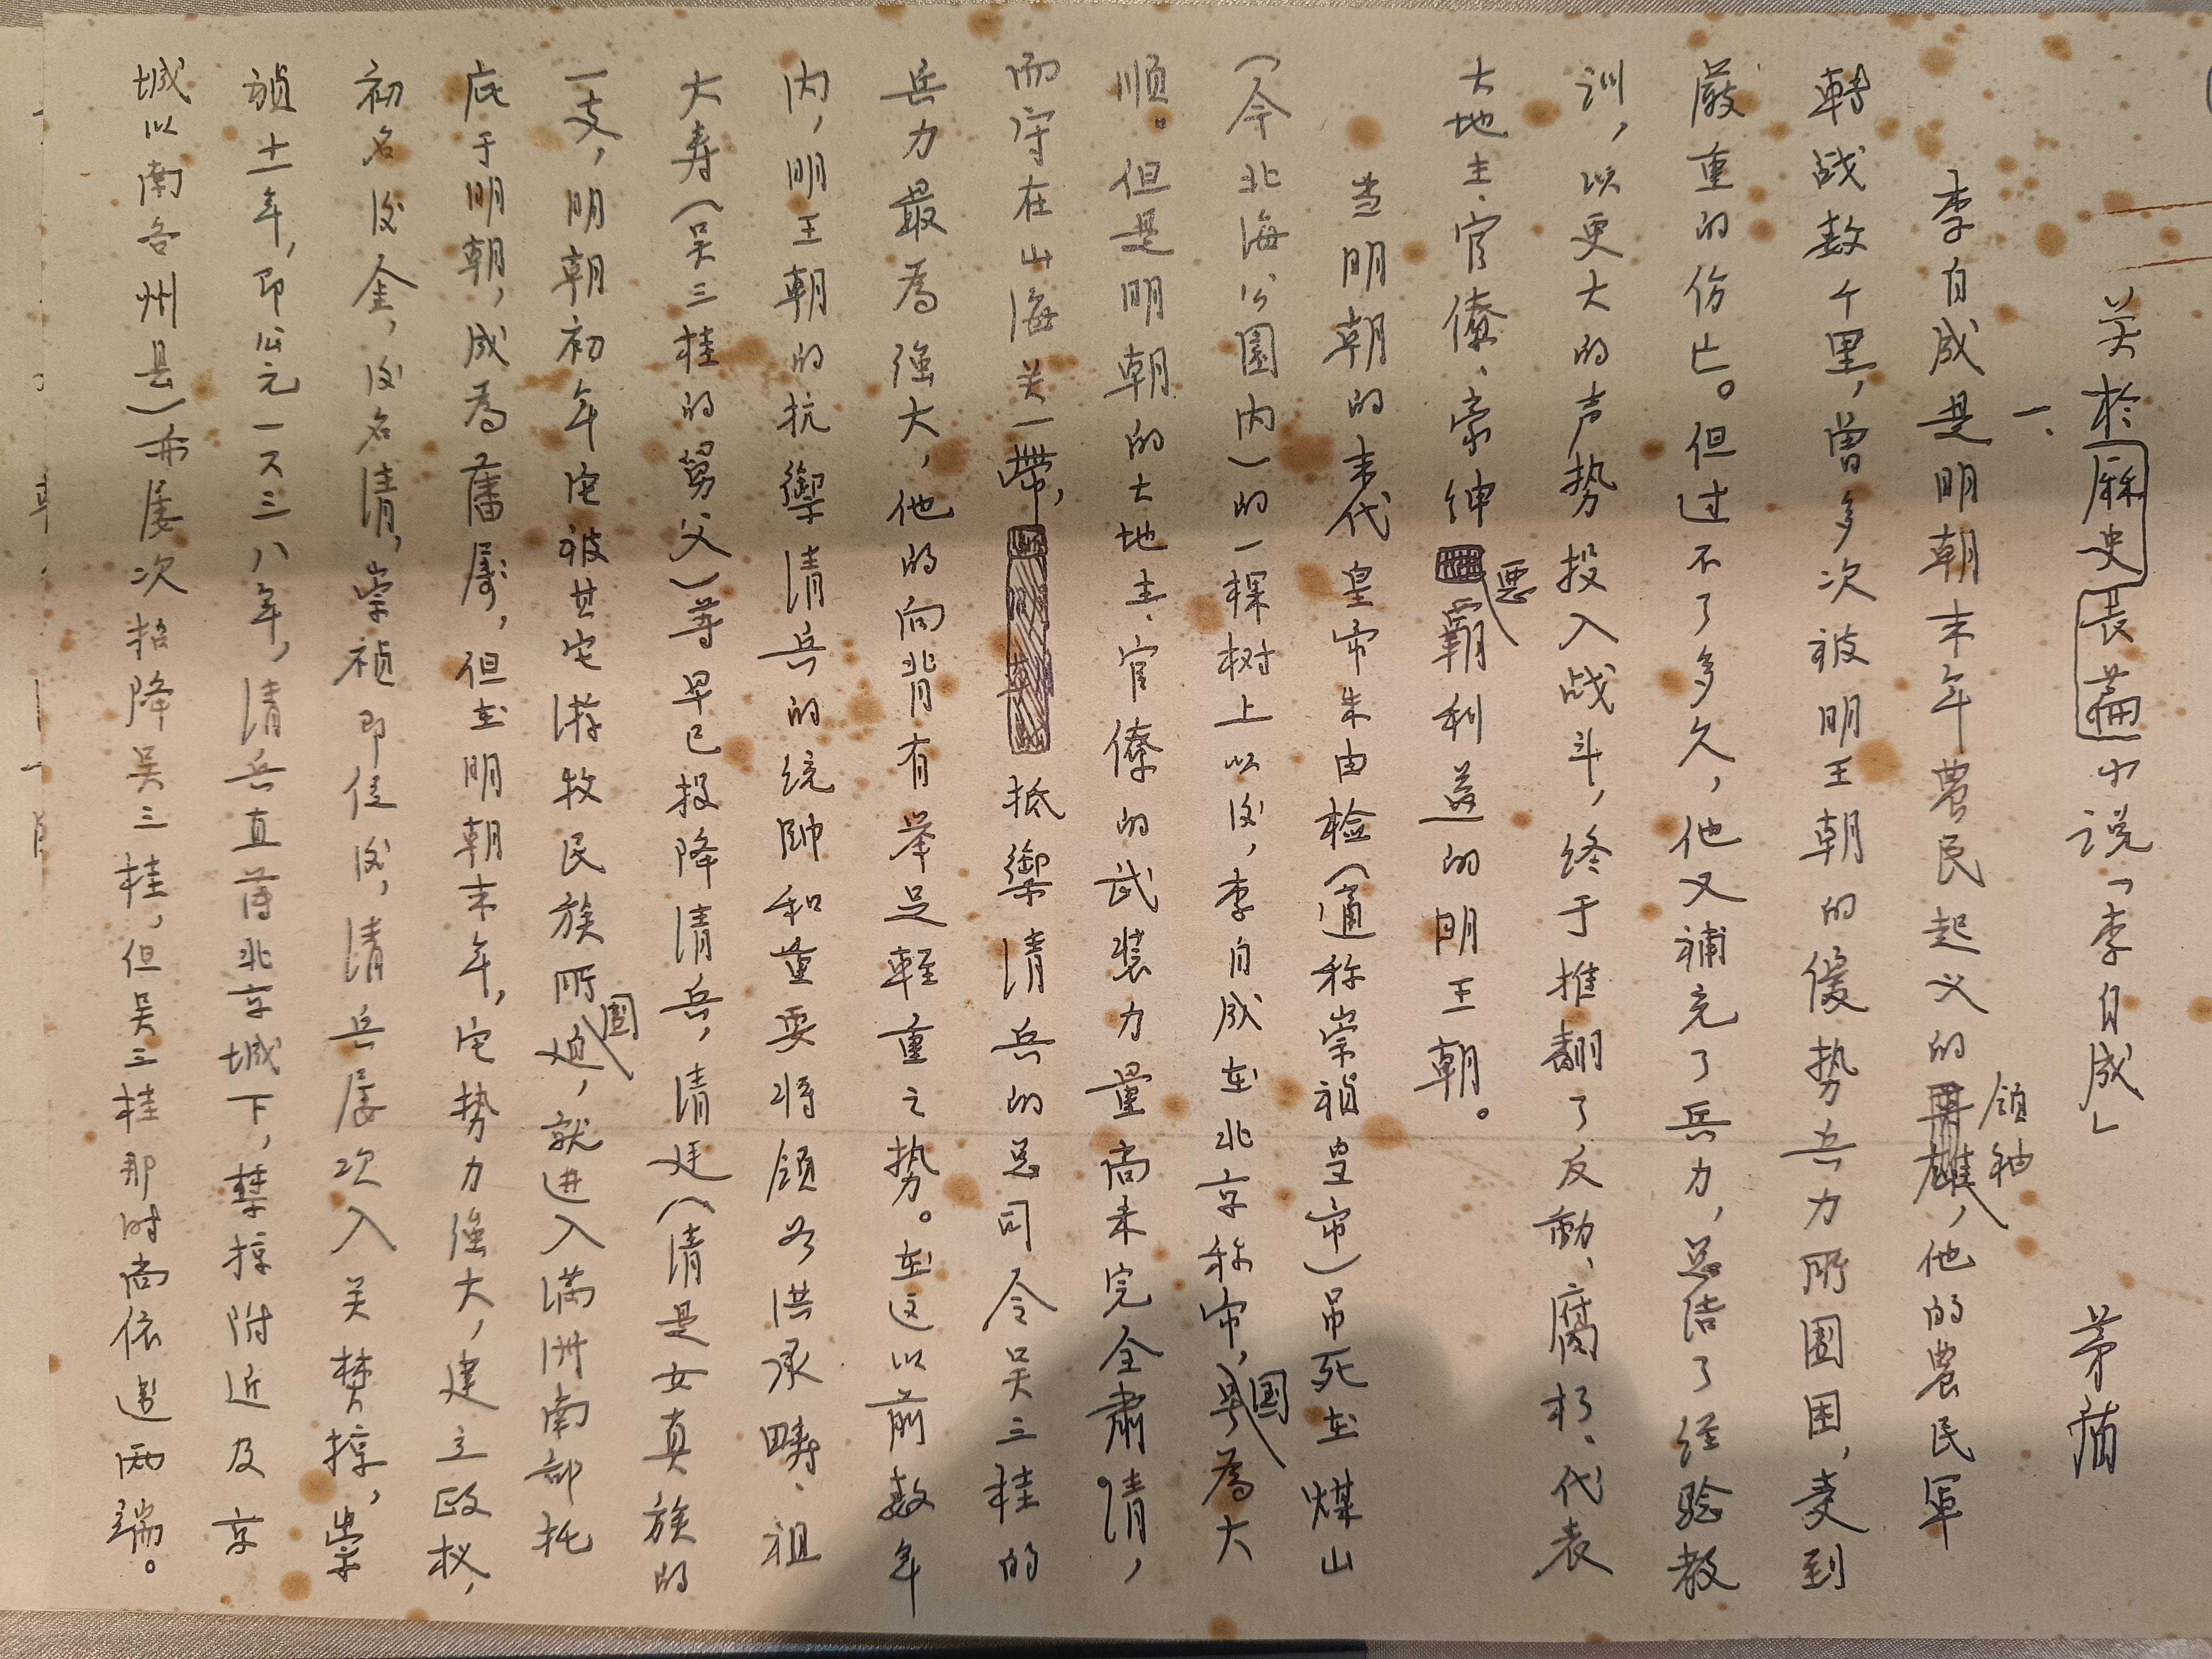 关於歷史長篇小说「李自成」 茅盾
一、
李自成是明朝末年農民起义的領袖，他的農民軍
轉战数千里，曾多次被明王朝的優势兵力所圍困，受到
嚴重的伤亡。但过不了多久，他又補充了兵力，总结了经验教
训，以更大的声势投入战斗，终于推翻了反动、腐朽、代表
大地主、官僚、豪绅悪霸利益的明王朝。
当明朝的末代皇帝朱由检（通称崇禎皇帝）吊死在煤山
（今北海公園内）的一棵树上以后，李自成在北京称帝，國号為大
順。但是明朝的大地主、官僚的武装力量尚未完全肅清，
而守在山海关一帶，抵禦清兵的总司令吴三桂的
兵力最為強大，他的向背有举足輕重之势。在这以前数年
内，明王朝的抗禦清兵的统帥和重要将領如洪承疇、祖
大寿（吴三桂的舅父）等早已投降清兵，清廷（清是女真族的
一支，明朝初年它被其它游牧民族所迫，就進入满洲南部托
庇于明朝，成為藩屬，但在明朝末年，它势力強大，建立政权，
初名后金，后名清，崇禎即位后，清兵屡次入关焚掠，崇
禎十一年，即公元一六三八年，清兵直薄北京城下，焚掠附近及京
城以南各州县）亦屡次招降吴三桂，但吴三桂那时尚依违两端。